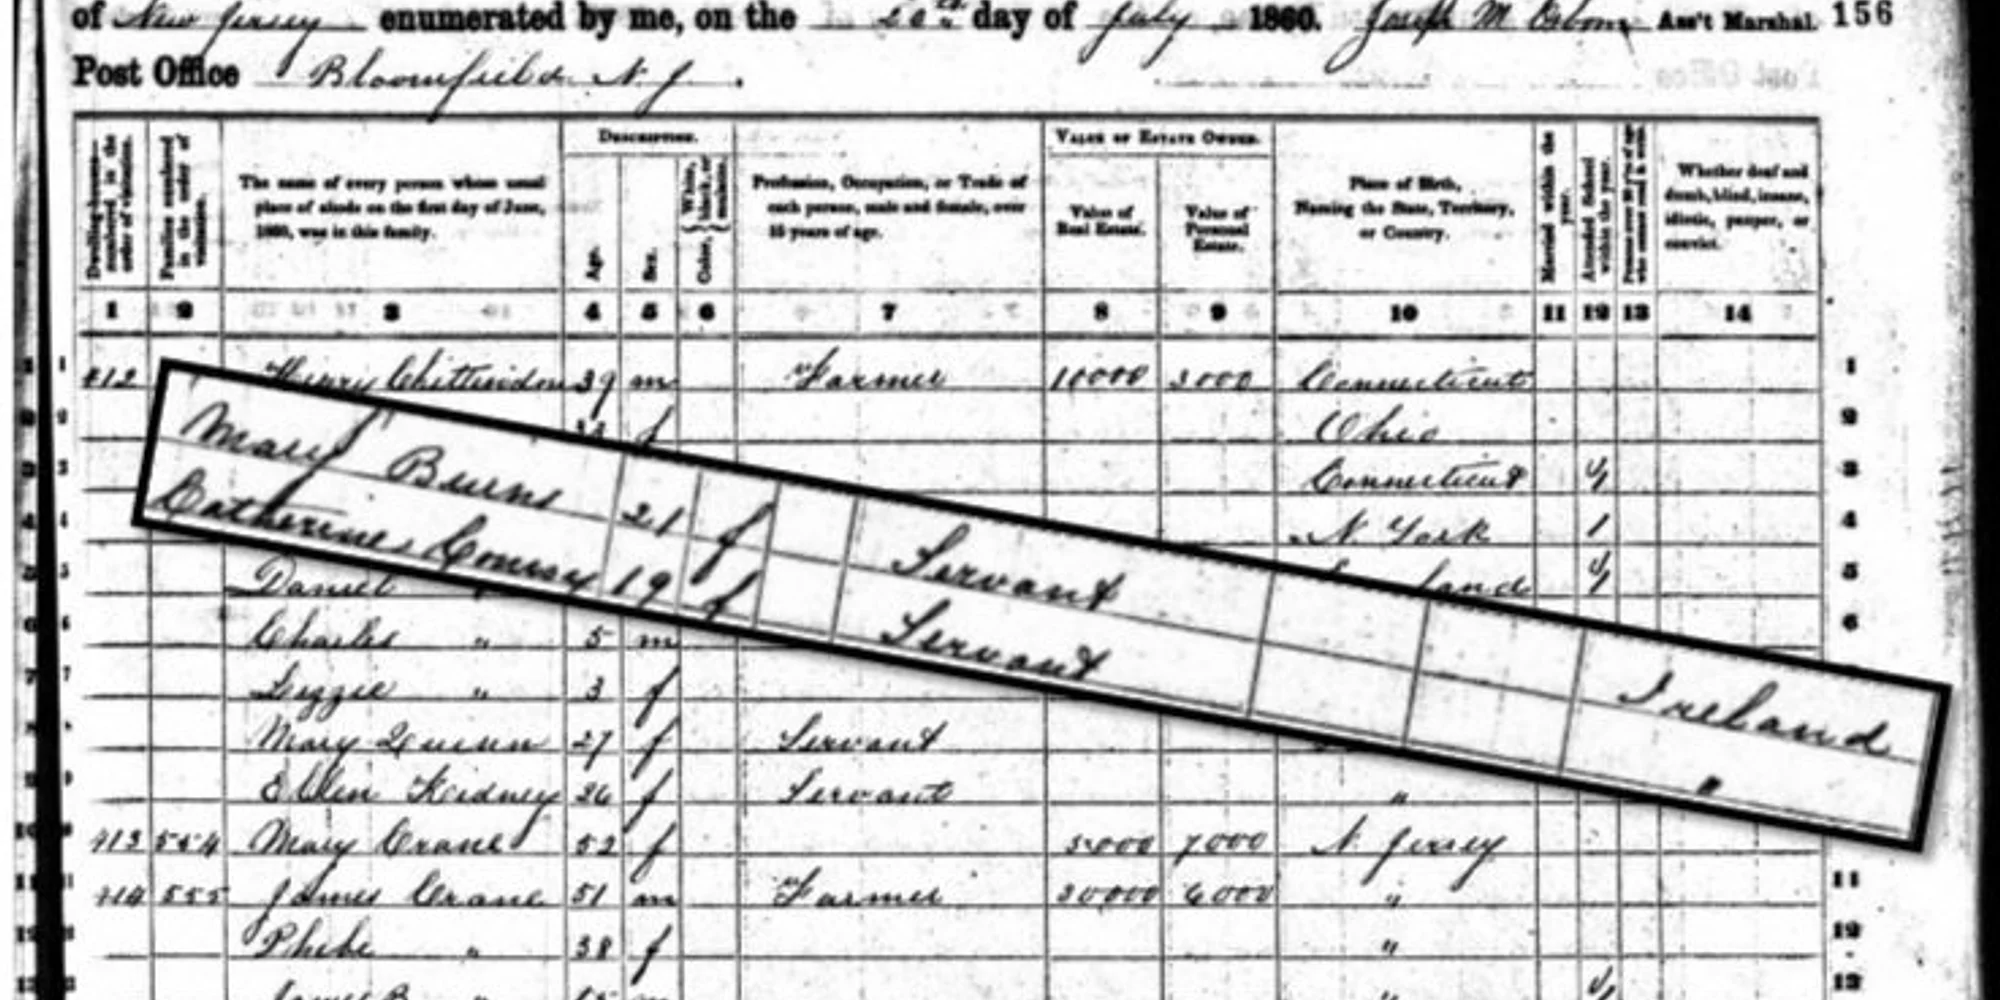 of New Jersey enumerated by me, on the 20th day of July 1860. Joseph M Osborn Ass't Marshal. 156
Post Office Bloomfield N J.
Dwelling-houses— numbered in the order of visitation.
Families numbered in the order of visitation.
The name of every person whose usual place of abode on the first day of June, 1860, was in this family.
Description.
Age.
Sex.
Color, White, black, or mulatto.
Profession, Occupation, or Trade of each person, male and female, over 15 years of age.
Value of Estate Owned.
Value of Real Estate.
Value of Personal Estate.
Place of Birth, Naming the State, Territory, or Country.
Married within the year.
Attended School within the year.
Whether deaf and dumb, blind, insane, idiotic, pauper, or convict.
1 2 3 4 5 6 7 8 9 10 11 12 13 14
1 412 Henry Chittendon 39 m Farmer 10000 3000 Connecticut 1
2 f Ohio 2
3 Connecticut 1 3
4 N York 1 4
Mary Burns 21 f Servant Ireland
Catherine 19 f Servant "
5 Daniel 1 5
6 Charles " 5 m 6
7 Lizzie " 3 f
8 Mary Quinn 27 f Servant
9 Ellen Kidney 26 f Servant "
10 413 554 Mary Crane 52 f 5000 7000 N Jersey
11 414 555 James Crane 51 m Farmer 30000 6000 " 11
12 Phebe " 38 f " 12
13 James B " 15 m " 1 13